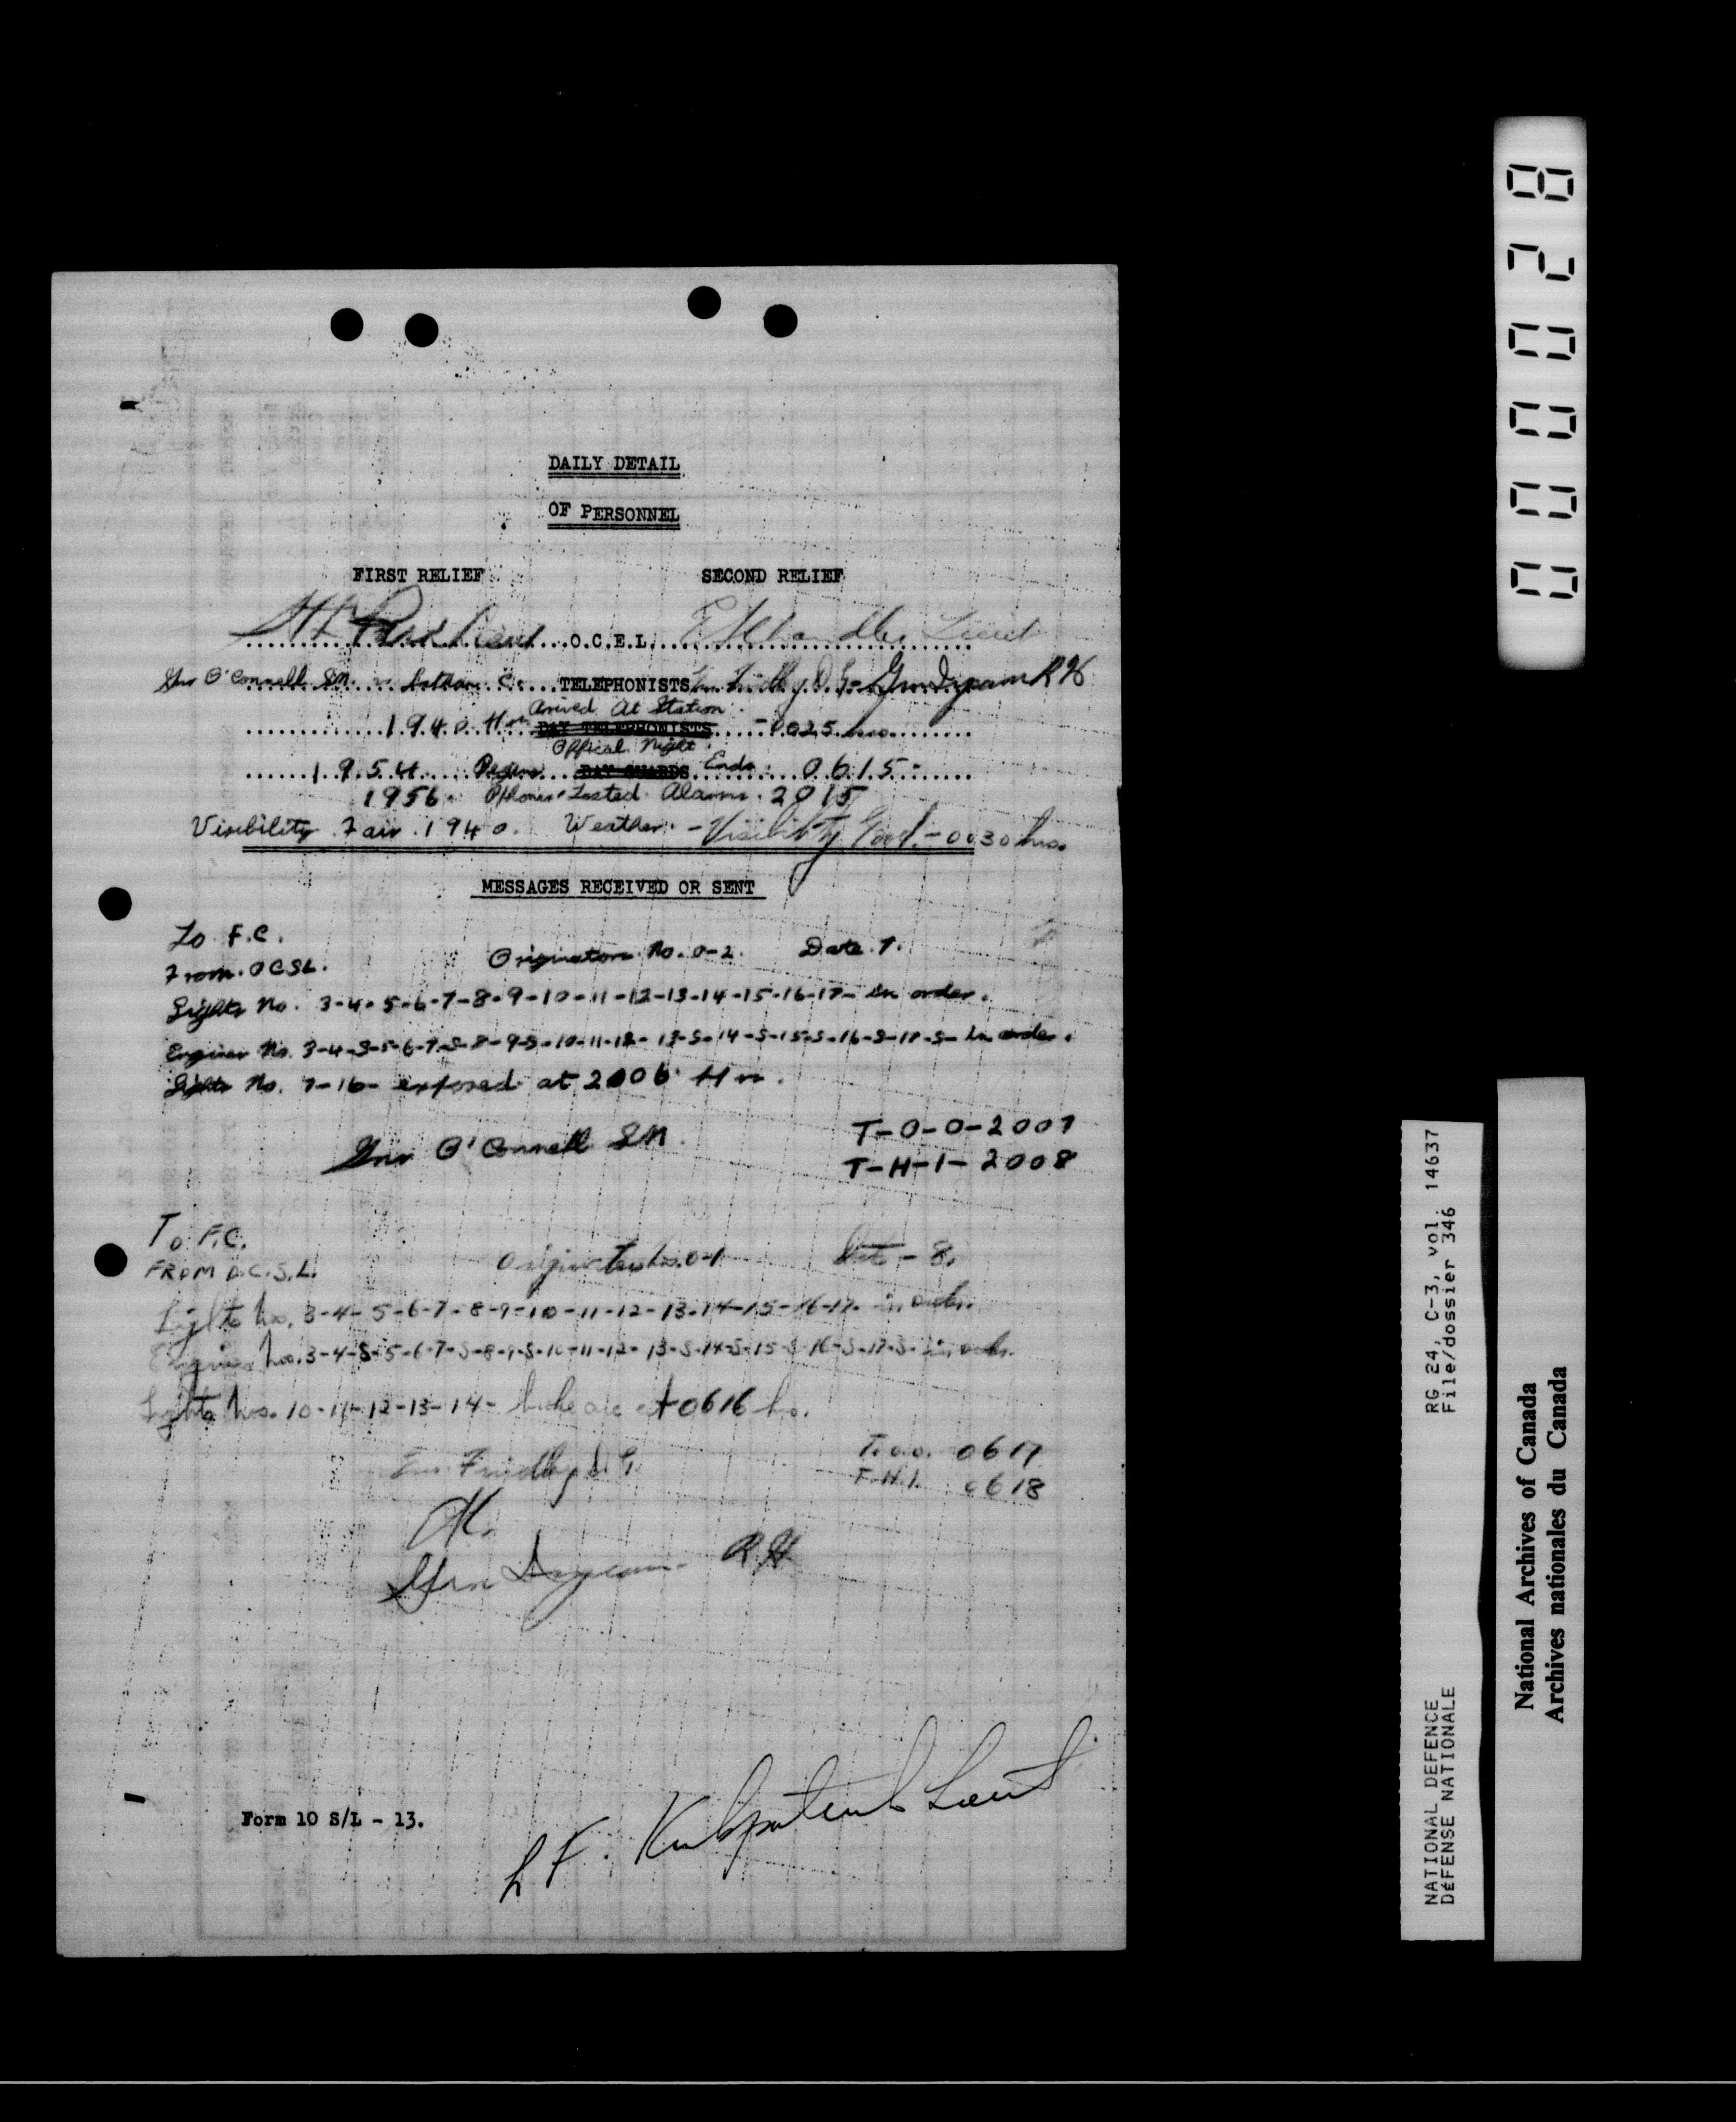 DAILY DETAIL
OF PERSONNEL
FIRST RELIEF SECOND RELIEF
Lieut O.C.E.L. Chandler Lieut
Gnr O'Connell S.M. C. TELEPHONISTS D.G. - Gnr R H
Arrived At Station
1940 Hrs DAY TELEPHONISTS - 0025 hrs
Offical Night
1954 Begins DAY GUARDS Ends 0615 -
1956 Phones Tested Alarm 2015
Visibility Fair 1940. Weather - Visibility Good - 0030 hrs.
MESSAGES RECEIVED OR SENT
To F.C.
From. OCSL. Originators No. 0-2. Date 7.
Lights No. 3-4-5-6-7-8-9-10-11-12-13-14-15-16-17- in order.
Engines No. 3-4-S-5-6-7-S-8-9-S-10-11-12-13-S-14-S-15-S-16-S-17-S- in order.
Lights No. 7-16- exposed at 2006 Hrs.
Gnr O'Connell SM. T-O-O-2007
T-H-I-2008
To F.C.
FROM O.C.S.L. Originators No. 0-1 Date - 8.
Lights Nos. 3-4-5-6-7-8-9-10-11-12-13-14-15-16-17- in order.
Engines Nos. 3-4-S-5-6-7-S-8-9-S-10-11-12-13-S-14-S-15-S-16-S-17-S- in order.
Lights Nos. 10-11-12-13-14- broke arc at 0616 hrs.
D.G. T.O.O. 0617
T.H.I. 0618
Gnr R H
L F. Kirkpatrick Lieut
Form 10 S/L - 13.
000028
RG 24, C-3, vol. 14637
File/dossier 346
NATIONAL DEFENCE
DÉFENSE NATIONALE
National Archives of Canada
Archives nationales du Canada